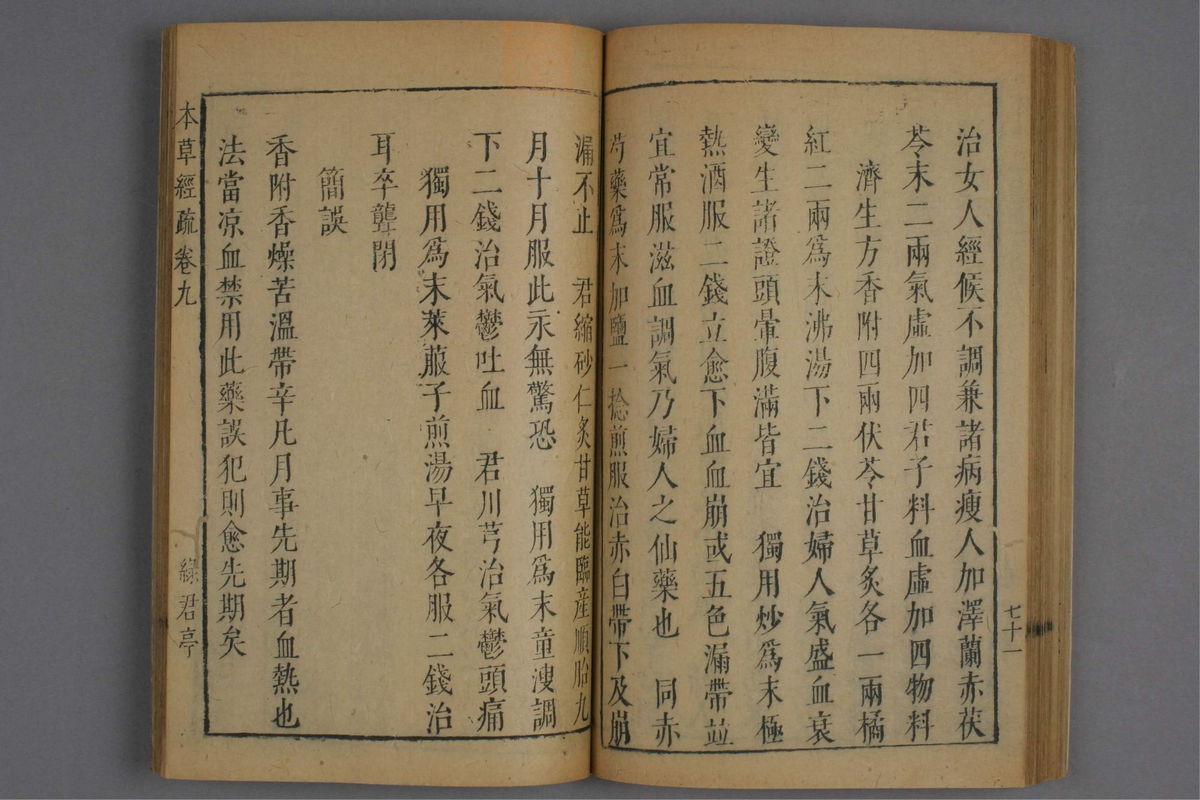 七十一
治女人經候不調兼諸病瘦人加澤蘭赤茯
苓末二兩氣虛加四君子料血虛加四物料
濟生方香附四兩伏苓甘草炙各一兩橘
紅二兩爲末沸湯下二錢治婦人氣盛血衰
變生諸證頭暈腹滿皆宜　獨用炒爲末極
熱酒服二錢立愈下血血崩或五色漏帶竝
宜常服滋血調氣乃婦人之仙藥也　同赤
芍藥爲末加鹽一捻煎服治赤白帶下及崩
漏不止　君縮砂仁炙甘草能臨產順胎九
月十月服此永無驚恐　獨用爲末童溲調
下二錢治氣鬱吐血　君川芎治氣鬱頭痛
獨用爲末萊菔子煎湯早夜各服二錢治
耳卒聾閉
簡誤
香附香燥苦溫帶辛凡月事先期者血熱也
法當凉血禁用此藥誤犯則愈先期矣
本草經疏卷九
綠君亭